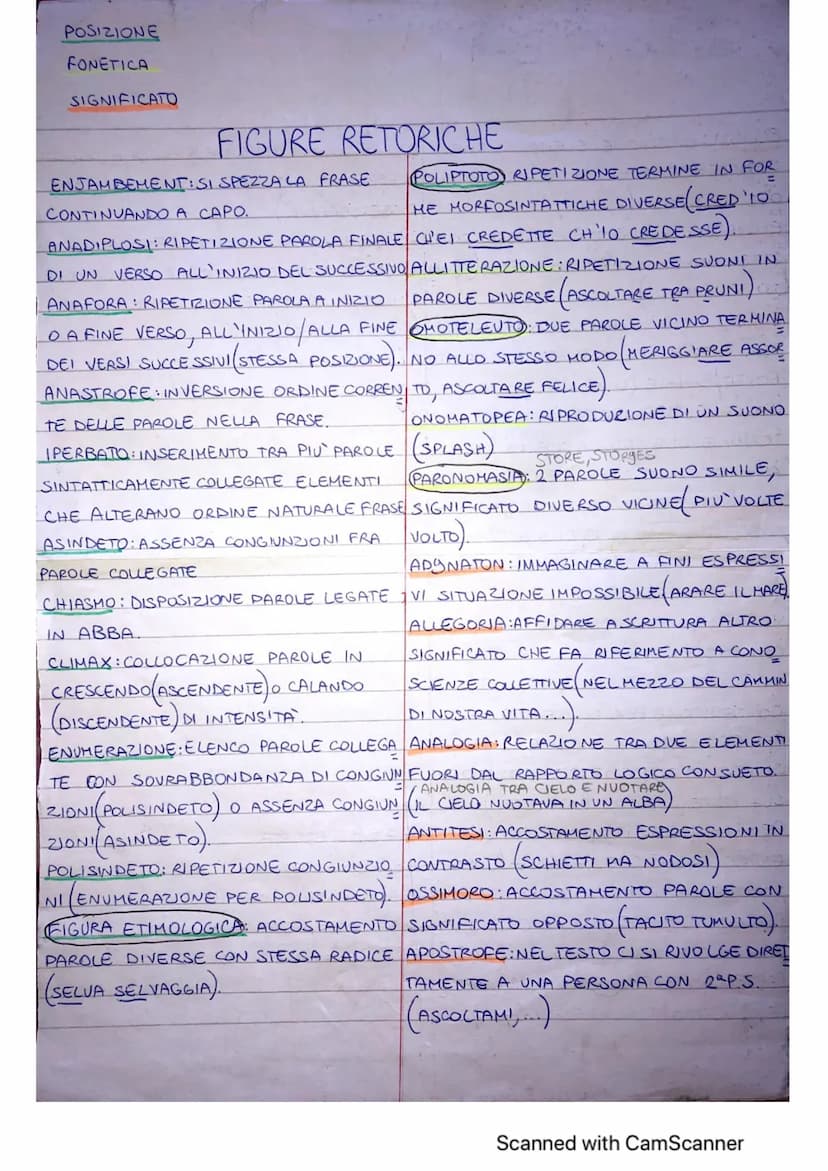 POSIZIONE
FONETICA
SIGNIFICATO
FIGURE RETORICHE
ENJAMBEMENT: SI SPEZZA LA FRASE
CONTINUANDO A CAPO.
ANADIPLOSI: RIPETIZIONE PAROLA FINALE
DI UN VERSO ALL'INIZIO DEL SUCCESSIVO
ANAFORA: RIPETIZIONE PAROLA A INIZIO
O A FINE VERSO, ALL'INIZIO/ALLA FINE
DEI VERSI SUCCESSIVI (STESSA POSIZIONE).
ANASTROFE: INVERSIONE ORDINE CORREN
TE DELLE PAROLE NELLA FRASE.
IPERBATO: INSERIMENTO TRA PIU' PAROLE
SINTATTICAMENTE COLLEGATE ELEMENTI
CHE ALTERANO ORDINE NATURALE FRASE
ASINDETO: ASSENZA CONGIUNZIONI FRA
PAROLE COLLEGATE
CHIASMO: DISPOSIZIONE PAROLE LEGATE
IN ABBA.
CLIMAX: COLLOCAZIONE PAROLE IN
CRESCENDO (ASCENDENTE) O CALANDO
(DISCENDENTE) DI INTENSITA'.
ENUMERAZIONE: ELENCO PAROLE COLLEGA
TE CON SOVRABBONDANZA DI CONGIUN
ZIONI (POLISINDETO) O ASSENZA CONGIUN
ZIONI (ASINDETO).
POLISINDETO: RIPETIZIONE CONGIUNZIO
NI (ENUMERAZIONE PER POLISINDETO).
FIGURA ETIMOLOGICA: ACCOSTAMENTO
PAROLE DIVERSE CON STESSA RADICE
(SELVA SELVAGGIA).
POLIPTOTO: RIPETIZIONE TERMINE IN FOR
ME MORFOSINTATTICHE DIVERSE (CRED'IO
CH'EI CREDETTE CH'IO CREDESSE).
ALLITTERAZIONE: RIPETIZIONE SUONI IN
PAROLE DIVERSE (ASCOLTARE TRA PRUNI)
OMOTELEUTO: DUE PAROLE VICINO TERMINA
NO ALLO STESSO MODO (MERIGGIARE ASSOR
TO, ASCOLTARE FELICE).
ONOMATOPEA: RIPRODUZIONE DI UN SUONO
(SPLASH)
STORE, STORYES
PARONOMASIA: 2 PAROLE SUONO SIMILE,
SIGNIFICATO DIVERSO VICINE (PIU' VOLTE
VOLTO).
ADYNATON: IMMAGINARE A FINI ESPRESSI
VI SITUAZIONE IMPOSSIBILE (ARARE IL MARE)
ALLEGORIA: AFFIDARE A SCRITTURA ALTRO
SIGNIFICATO CHE FA RIFERIMENTO A CONO
SCIENZE COLLETTIVE (NEL MEZZO DEL CAMMIN
DI NOSTRA VITA...).
ANALOGIA: RELAZIONE TRA DUE ELEMENTI
FUORI DAL RAPPORTO LOGICO CONSUETO.
ANALOGIA TRA CIELO E NUOTARE
(IL CIELO NUOTAVA IN UN ALBA)
ANTITESI: ACCOSTAMENTO ESPRESSIONI IN
CONTRASTO (SCHIETTI MA NODOSI)
OSSIMORO: ACCOSTAMENTO PAROLE CON
SIGNIFICATO OPPOSTO (TACITO TUMULTO).
APOSTROFE: NEL TESTO CI SI RIVOLGE DIRET
TAMENTE A UNA PERSONA CON 2ª P.S.
(ASCOLTAMI,...)
Scanned with CamScanner